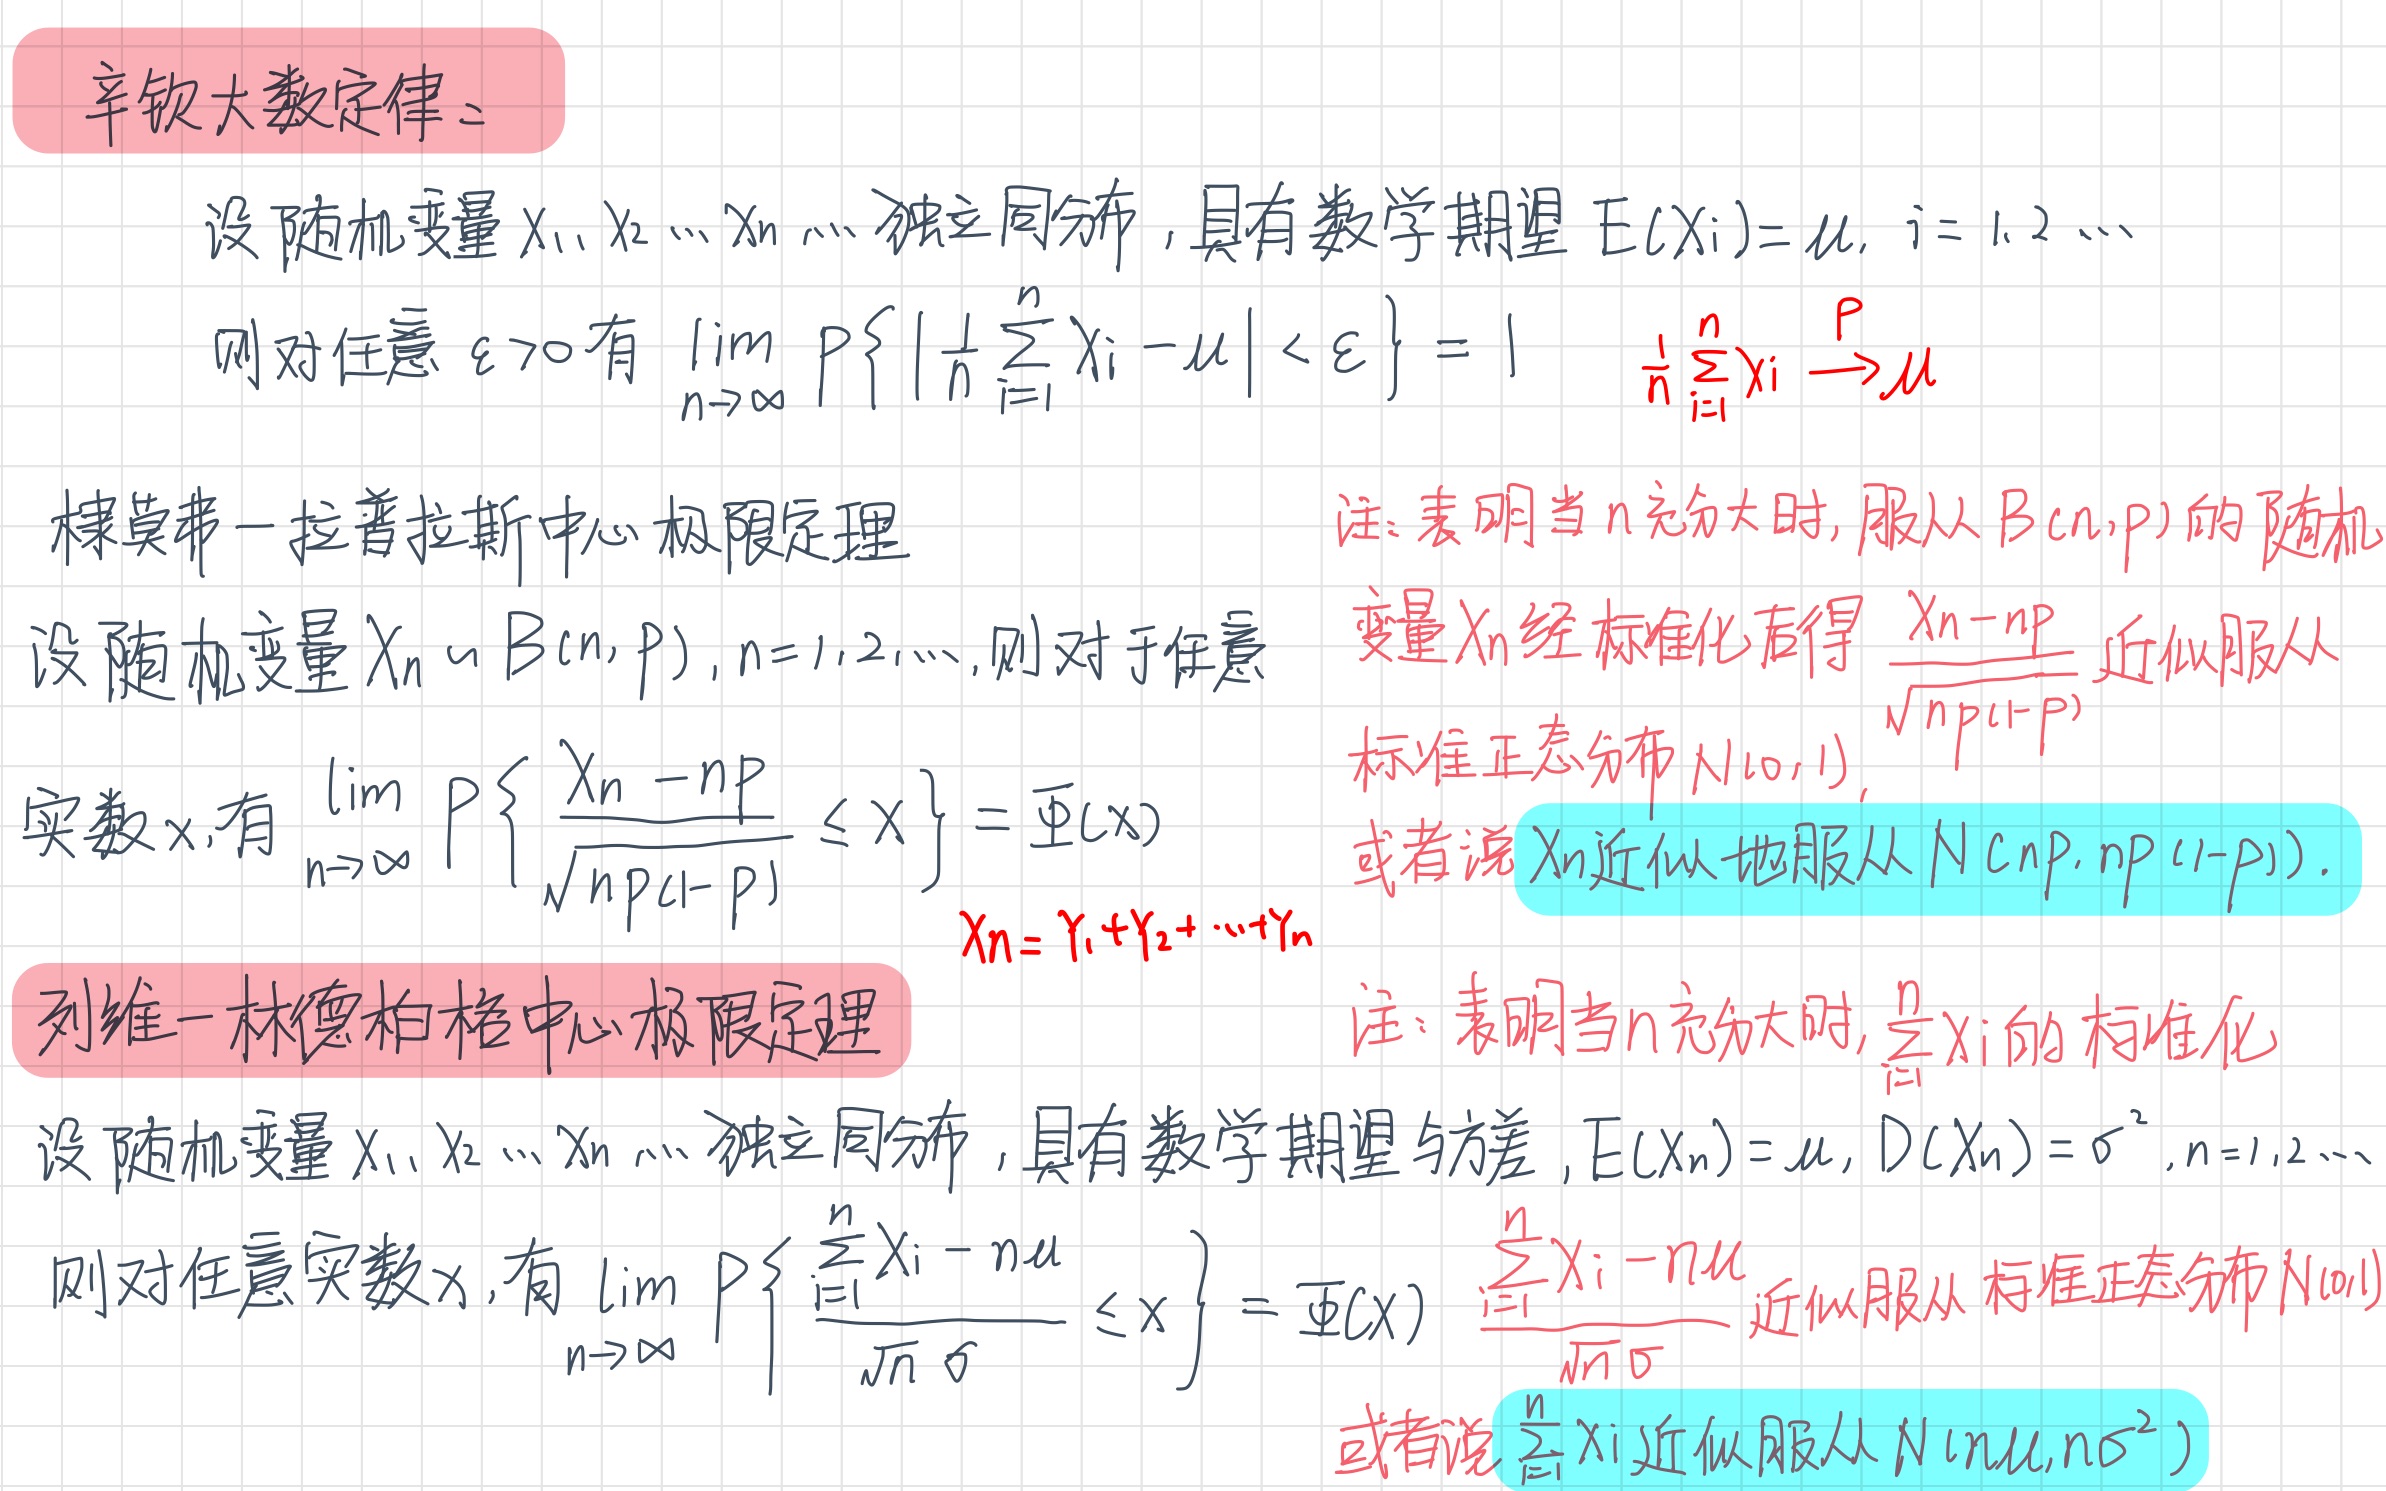 辛钦大数定律:
设随机变量 X₁, X₂ … Xn … 独立同分布, 具有数学期望 E(Xi)=μ, i=1.2…
则对任意 ε>0 有 lim_{n→∞} P{|1/n ∑_{i=1}^{n} Xi − μ| < ε} = 1
1/n ∑_{i=1}^{n} Xi →^P μ
棣莫弗一拉普拉斯中心极限定理
设随机变量 Xn ∽ B(n, p), n=1.2, …, 则对于任意
实数 x, 有 lim_{n→∞} P{(Xn − np)/√(np(1−p)) ≤ x} = Φ(x)
Xn = Y₁+Y₂+…+Yn
注: 表明当 n 充分大时, 服从 B(n, p) 的随机
变量 Xn 经标准化后得 (Xn−np)/√(np(1−p)) 近似服从
标准正态分布 N(0, 1),
或者说 Xn近似地服从 N(np, np(1−p)).
列维一林德柏格中心极限定理
注: 表明当n充分大时, ∑_{i=1}^{n} Xi 的标准化
设随机变量 X₁, X₂ … Xn … 独立同分布, 具有数学期望与方差, E(Xn)=μ, D(Xn)=σ², n=1,2…
则对任意实数x, 有 lim_{n→∞} P{(∑_{i=1}^{n} Xi − nμ)/(√n σ) ≤ x} = Φ(x)
(∑_{i=1}^{n} Xi − nμ)/(√n σ) 近似服从标准正态分布 N(0,1)
或者说 ∑_{i=1}^{n} Xi 近似服从 N(nμ, nσ²)